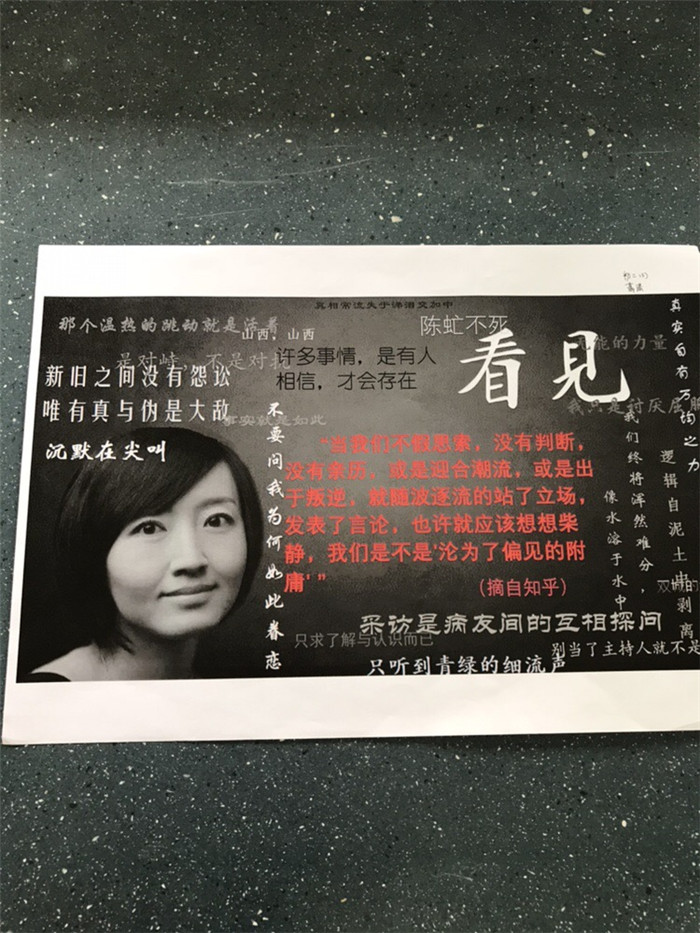 真相常流失于涕泪交加中
那个温热的跳动就是活着
山西，山西
陈虻不死
看见
无能的力量
真实自有万均之力
是对峙，不是对抗
许多事情，是有人
相信，才会存在
新旧之间没有怨讼
唯有真与伪是大敌
事实就是如此
我只是讨厌屈服
沉默在尖叫
不要问我为何如此眷恋
“当我们不假思索，没有判断，
没有亲历，或是迎合潮流，或是出
于叛逆，就随波逐流的站了立场，
发表了言论，也许就应该想想柴
静，我们是不是‘沦为了偏见的附
庸’”
（摘自知乎）
我们终将浑然难分，
像水溶于水中
逻辑自泥土中剥离
双城的
采访是病友间的互相探问
只求了解与认识而已
别当了主持人就不是
只听到青绿的细流声